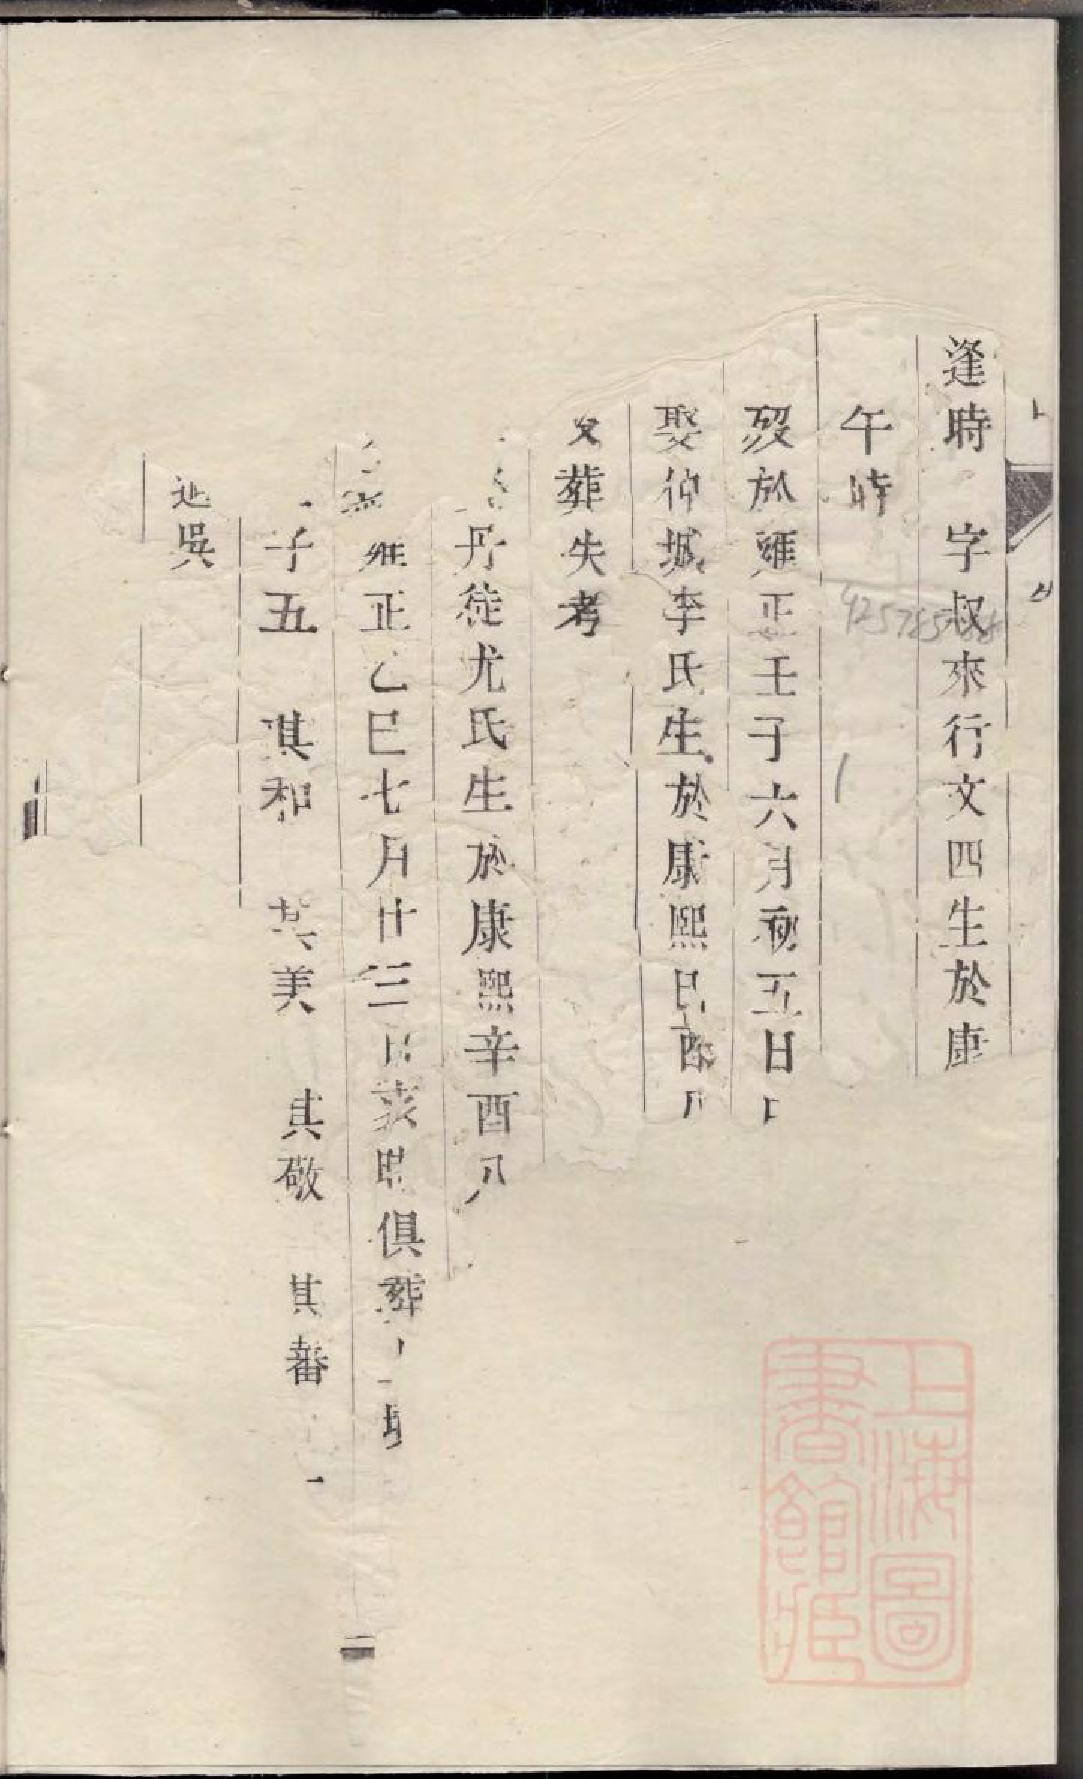 逢時 字叔來行文四生於康
午時
歿於雍正壬子六月初五日
娶仰城李氏生於康熙己酉月
葬失考
丹徒尤氏生於康熙辛酉八
雍正乙巳七月廿三日亥時俱葬
子五 其和 其美 其敬 其蕃
吳
425785
上海圖
書館藏